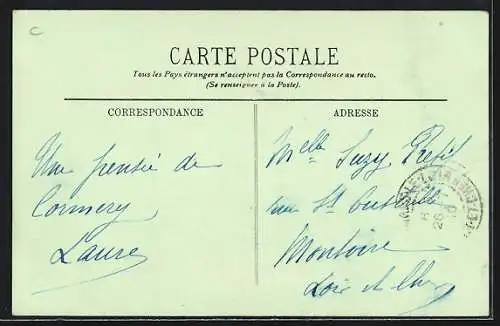 C
CARTE POSTALE
Tous les Pays étrangers n'acceptent pas la Correspondance au recto.
(Se renseigner à la Poste).
CORRESPONDANCE
ADRESSE
Une pensée de
Cormery
Laure
Melle Suzy
rue St
Montoire
Loir et Cher